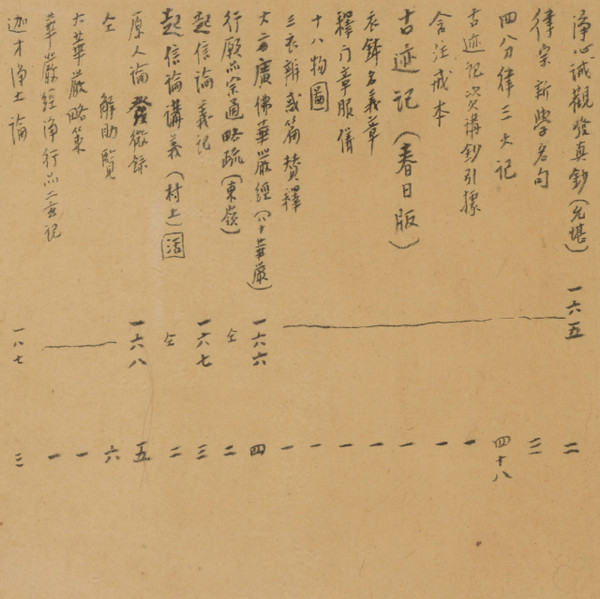 浄心誡觀發真鈔(允堪) 一六五 二
律宗新學名句 三
四分律三大記 四十八
古迹記資講鈔引據 一
含注戒本 一
古迹記(春日版) 一
衣鉢名義章 一
釋門章服儀 一
十八物圖 一
三衣辨惑篇賛釋 一
大方廣佛華嚴經(八十華嚴) 一六六 四
行願品宗通略疏(東嶺) 仝 二
起信論義記 一六七 三
起信論講義(村上)活 仝 二
原人論發微録 一六八 五
仝 解助覽 六
大華嚴略策 一
華嚴經浄行品二玄記 一
迦才浄土論 一八七 三